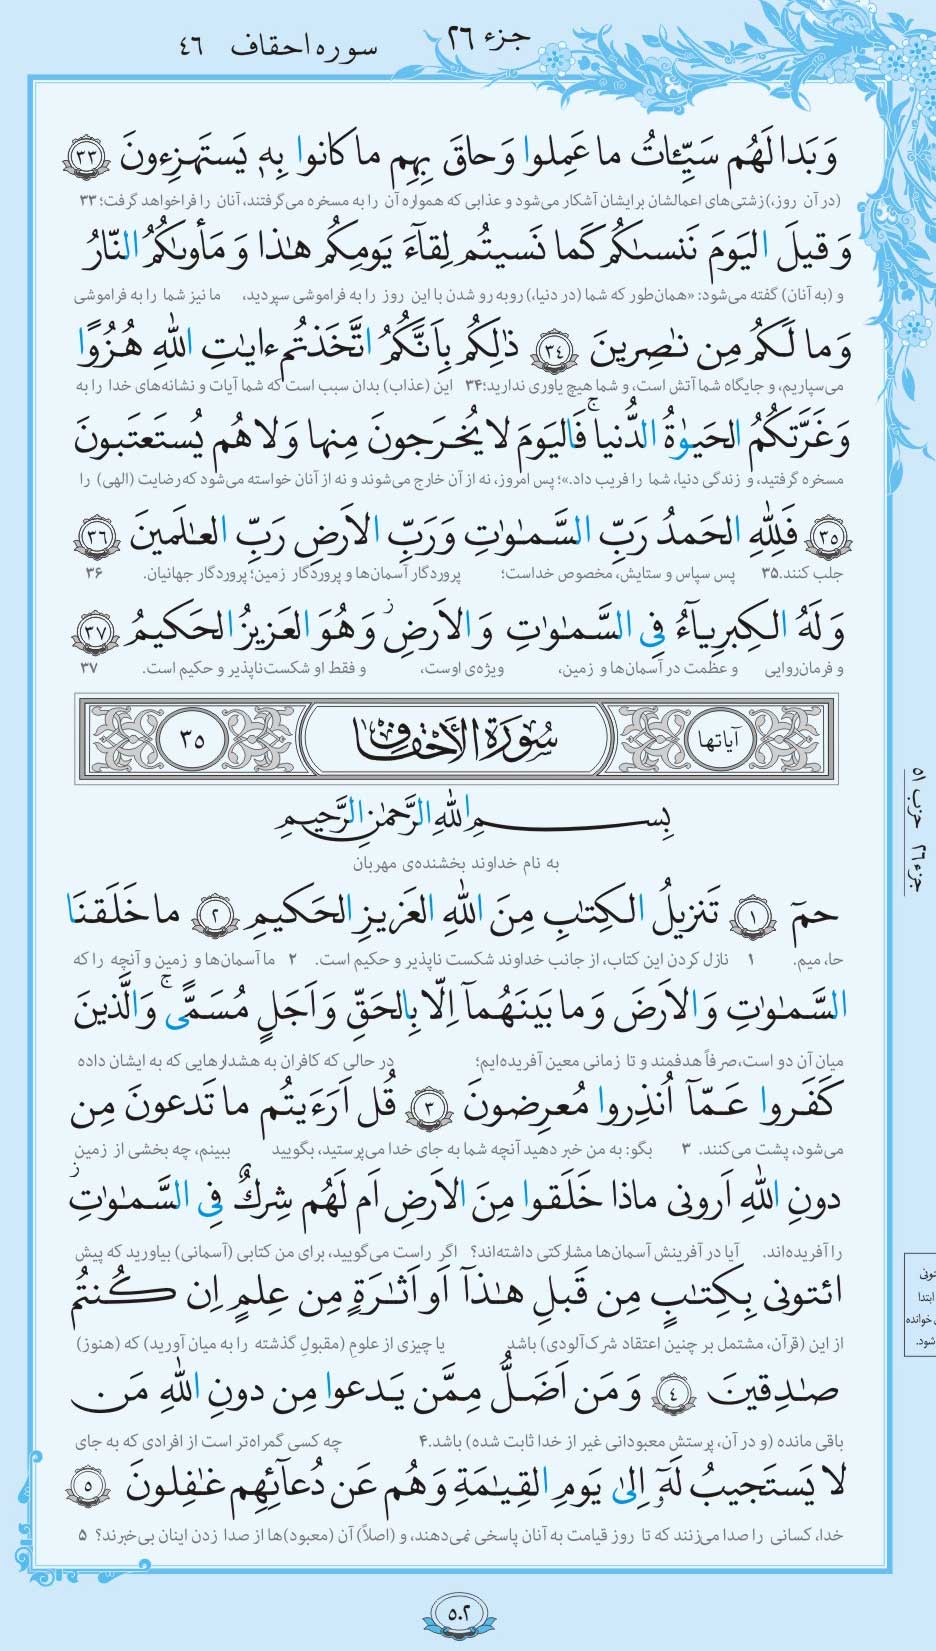 جزء ۲۶
سوره احقاف ۴۶
وَ بَدا لَهُم سَيِّئاتُ ما عَمِلوا وَ حاقَ بِهِم ما كانوا بِهٖ يَستَهزِءونَ ۳۳
(در آن روز،) زشتی‌های اعمالشان برایشان آشکار می‌شود و عذابی که همواره آن را به مسخره می‌گرفتند، آنان را فراخواهد گرفت؛ ۳۳
وَ قيلَ اليَومَ نَنسىٰكُم كَما نَسيتُم لِقآءَ يَومِكُم هٰذا وَ مَأوىٰكُمُ النّارُ
و (به آنان) گفته می‌شود: «همان‌طور که شما (در دنیا،) روبه رو شدن با این روز را به فراموشی سپردید، ما نیز شما را به فراموشی
وَ ما لَكُم مِن نٰصِرينَ ۳۴ ذٰلِكُم بِاَنَّكُمُ اتَّخَذتُم ءايٰتِ اللّٰهِ هُزُوًا
می‌سپاریم، و جایگاه شما آتش است، و شما هیچ یاوری ندارید؛ ۳۴ این (عذاب) بدان سبب است که شما آیات و نشانه‌های خدا را به
وَ غَرَّتكُمُ الحَيوٰةُ الدُّنيا ۚ فَاليَومَ لا يُخرَجونَ مِنها وَ لا هُم يُستَعتَبونَ
مسخره گرفتید، و زندگی دنیا، شما را فریب داد.»؛ پس امروز، نه از آن خارج می‌شوند و نه از آنان خواسته می‌شود که رضایت (الهی) را
۳۵ فَلِلّٰهِ الحَمدُ رَبِّ السَّمٰوٰتِ وَ رَبِّ الاَرضِ رَبِّ العٰلَمينَ ۳۶
جلب کنند. ۳۵ پس سپاس و ستایش، مخصوص خداست؛ پروردگار آسمان‌ها و پروردگار زمین؛ پروردگار جهانیان. ۳۶
وَ لَهُ الكِبرِيآءُ فِى السَّمٰوٰتِ وَ الاَرضِ ز وَ هُوَ العَزيزُ الحَكيمُ ۳۷
و فرمان‌روایی و عظمت در آسمان‌ها و زمین، ویژه‌ی اوست، و فقط او شکست‌ناپذیر و حکیم است. ۳۷
آیاتها سُورَةُ الأَحْقَافِ ۳۵
بِسمِ اللّٰهِ الرَّحمٰنِ الرَّحيمِ
به نام خداوند بخشنده‌ی مهربان
حمٓ ۱ تَنزيلُ الكِتٰبِ مِنَ اللّٰهِ العَزيزِ الحَكيمِ ۲ ما خَلَقنَا
حا، میم. ۱ نازل کردن این کتاب، از جانب خداوند شکست ناپذیر و حکیم است. ۲ ما آسمان‌ها و زمین و آنچه را که
السَّمٰوٰتِ وَ الاَرضَ وَ ما بَينَهُمآ اِلّا بِالحَقِّ وَ اَجَلٍ مُسَمًّى ۚ وَ الَّذينَ
میان آن دو است، صرفاً هدفمند و تا زمانی معین آفریده‌ایم؛ در حالی که کافران به هشدارهایی که به ایشان داده
كَفَروا عَمّآ اُنذِروا مُعرِضونَ ۳ قُل اَرَءَيتُم ما تَدعونَ مِن
می‌شود، پشت می‌کنند. ۳ بگو: به من خبر دهید آنچه شما به جای خدا می‌پرستید، بگویید ببینم، چه بخشی از زمین
دونِ اللّٰهِ اَرونى ماذا خَلَقوا مِنَ الاَرضِ اَم لَهُم شِركٌ فِى السَّمٰوٰتِ ز
را آفریده‌اند. آیا در آفرینش آسمان‌ها مشارکتی داشته‌اند؟ اگر راست می‌گویید، برای من کتابی (آسمانی) بیاورید که پیش
ائتونى بِكِتٰبٍ مِن قَبلِ هٰذآ اَو اَثٰرَةٍ مِن عِلمٍ اِن كُنتُم
از این (قرآن، مشتمل بر چنین اعتقاد شرک‌آلودی) باشد یا چیزی از علومِ (مقبولِ گذشته را به میان آورید) که (هنوز)
صٰدِقينَ ۴ وَ مَن اَضَلُّ مِمَّن يَدعوا مِن دونِ اللّٰهِ مَن
باقی مانده (و در آن، پرستش معبودانی غیر از خدا ثابت شده) باشد. ۴ چه کسی گمراه‌تر است از افرادی که به جای
لا يَستَجيبُ لَهٗٓ اِلىٰ يَومِ القِيٰمَةِ وَ هُم عَن دُعآئِهِم غٰفِلونَ ۵
خدا، کسانی را صدا می‌زنند که تا روز قیامت به آنان پاسخی نمی‌دهند، و (اصلاً) آن (معبود)ها از صدا زدن اینان بی‌خبرند؟ ۵
جزء ۲۶ حزب ۵۱
ابتدا
خوانده
شود.
۵۰۲